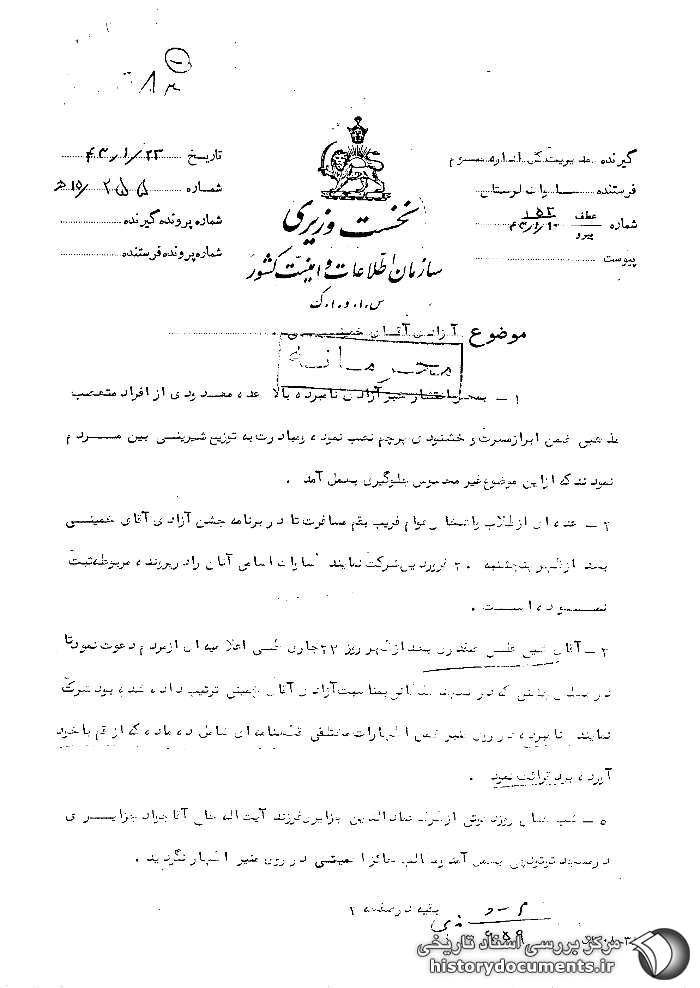 گیرنده مدیریت کل اداره سوم
فرستنده ساواک لرستان
شماره عطف ۱۵۳
پیرو ۴۳/۱/۱۰
پیوست
تاریخ ۴۳/۱/۲۳
شماره ۲۵۵/۱۵هـ
شماره پرونده گیرنده
شماره پرونده فرستنده
نخست وزیری
سازمان اطلاعات و امنیت کشور
س.ا.و.ا.ک
موضوع آزادی آقای خمینی
محرمانه
۱ – بمحض انتشار خبر آزادی نامبرده بالا عده معدودی از افراد متعصب
مذهبی ضمن ابراز مسرت و خشنودی پرچم نصب نموده و مبادرت به توزیع شیرینی بین مردم
نمودند که از این موضوع غیر محسوس جلوگیری بعمل آمد .
۲ – عده ای از طلاب با اشخاص عوام فریب بقم مسافرت تا در برنامه جشن آزادی آقای خمینی
بعد از ظهر پنجشنبه ۲۰ فروردین شرکت نمایند اسامی آنان را در پرونده مربوطه ثبت
نموده است .
۳ – آقای بعد از ظهر روز ۲۲ جاری طی اعلامیه ای از مردم دعوت نمود تا
در مجلس جشنی که در مسجد بمناسبت آزادی آقای خمینی ترتیب داده شده بود شرکت
نمایند نامبرده در روی منبر ضمن اظهارات مختلفی قطعنامه ای شامل ده ماده که از قم با خود
آورده بود قرائت نمود .
۵ – شب همان روز از طرف عمادالدین جزایری فرزند آیت اله حاج آقا جواد جزایری
در مسجد بعمل آمد و مطالب حائز اهمیتی در روی منبر اظهار نگردید .
بقیه در صفحه ۲
مرکز بررسی اسناد تاریخی
historydocuments.ir